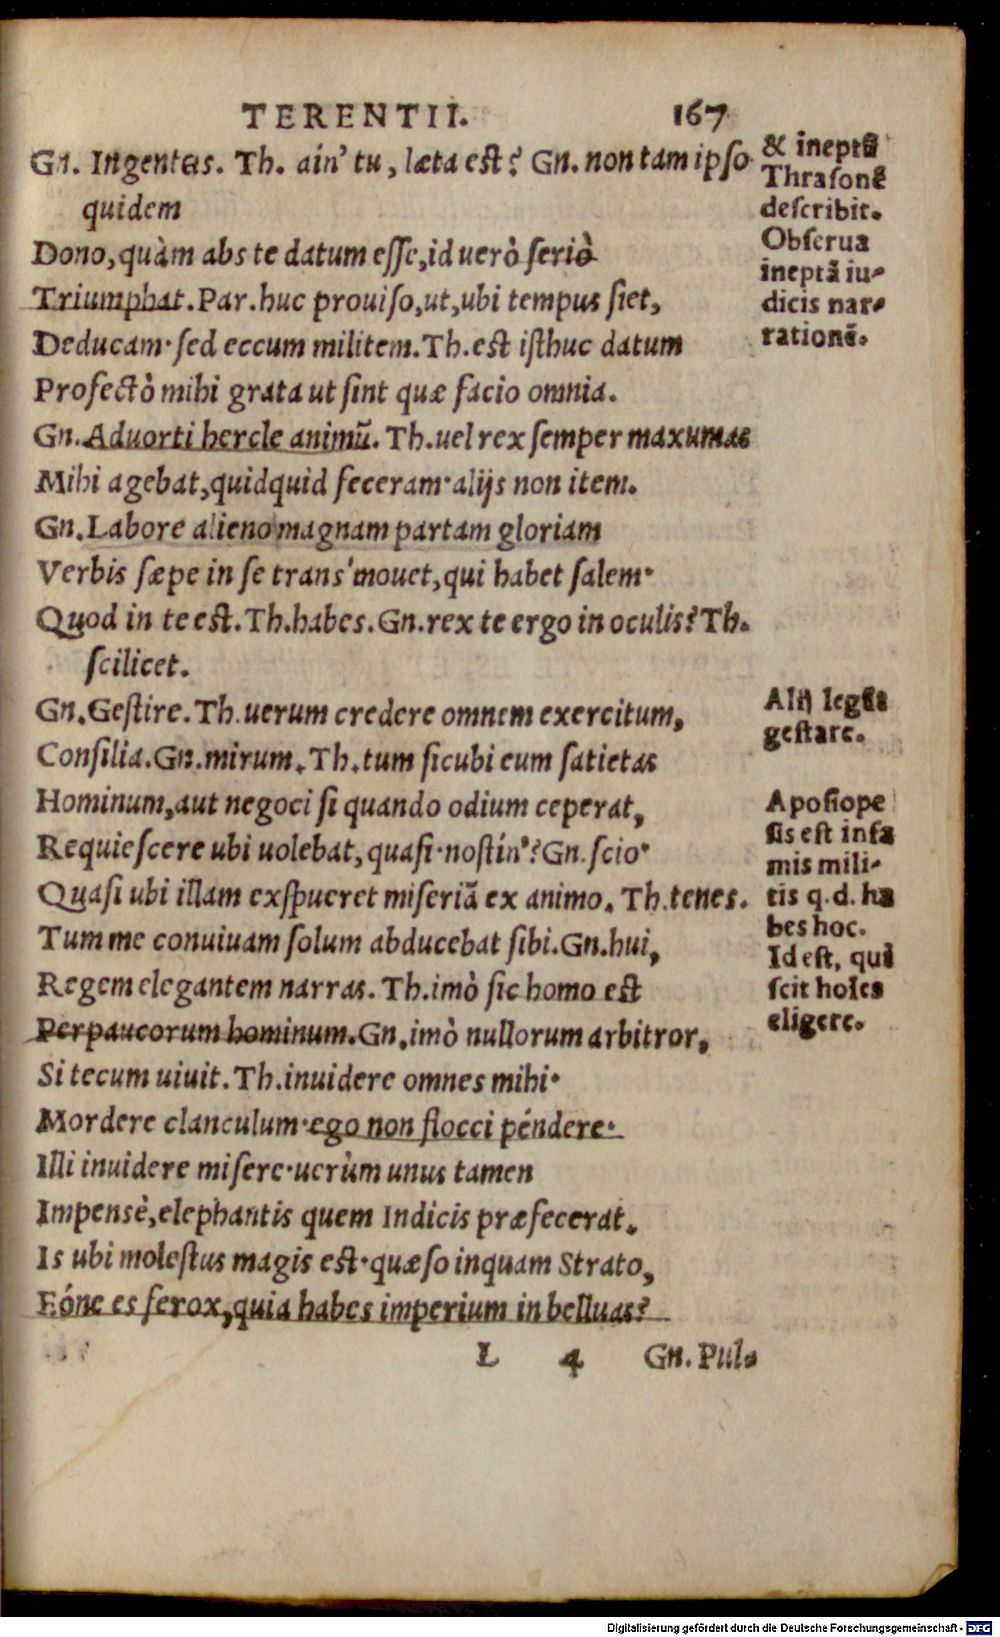 TERENTII. 167
Gn. Ingentes. Th. ain' tu, læta est? Gn. non tam ipso
quidem
Dono, quàm abs te datum esse, id uerò seriò
Triumphat. Par. huc prouiso, ut, ubi tempus siet,
Deducam· sed eccum militem. Th. est isthuc datum
Profectò mihi grata ut sint quæ facio omnia.
Gn. Aduorti hercle animũ. Th. uel rex semper maxumas
Mihi agebat, quidquid feceram· alijs non item.
Gn. Labore alieno magnam partam gloriam
Verbis sæpe in se trans'mouet, qui habet salem·
Quod in te est. Th. habes. Gn. rex te ergo in oculis? Th.
scilicet.
Gn. Gestire. Th. uerum credere omnem exercitum,
Consilia. Gn. mirum. Th. tum sicubi eum satietas
Hominum, aut negoci si quando odium ceperat,
Requiescere ubi uolebat, quasi· nostin'? Gn. scio·
Quasi ubi illam exspueret miseriã ex animo. Th. tenes.
Tum me conuiuam solum abducebat sibi. Gn. hui,
Regem elegantem narras. Th. imò sic homo est
Perpaucorum hominum. Gn. imò nullorum arbitror,
Si tecum uiuit. Th. inuidere omnes mihi·
Mordere clanculum· ego non flocci péndere·
Illi inuidere misere· uerùm unus tamen
Impensè, elephantis quem Indicis præfecerat.
Is ubi molestus magis est· quæso inquam Strato,
Eóne es ferox, quia habes imperium in belluas?
L 4 Gn. Pul-
& ineptũ
Thrasonẽ
describit.
Obserua
ineptã iu-
dicis nar-
rationẽ.
Alij legũt
gestare.
Aposiope
sis est infa
mis mili-
tis q.d. ha
bes hoc.
Id est, qui
scit hoĩes
eligere.
Digitalisierung gefördert durch die Deutsche Forschungsgemeinschaft - DFG